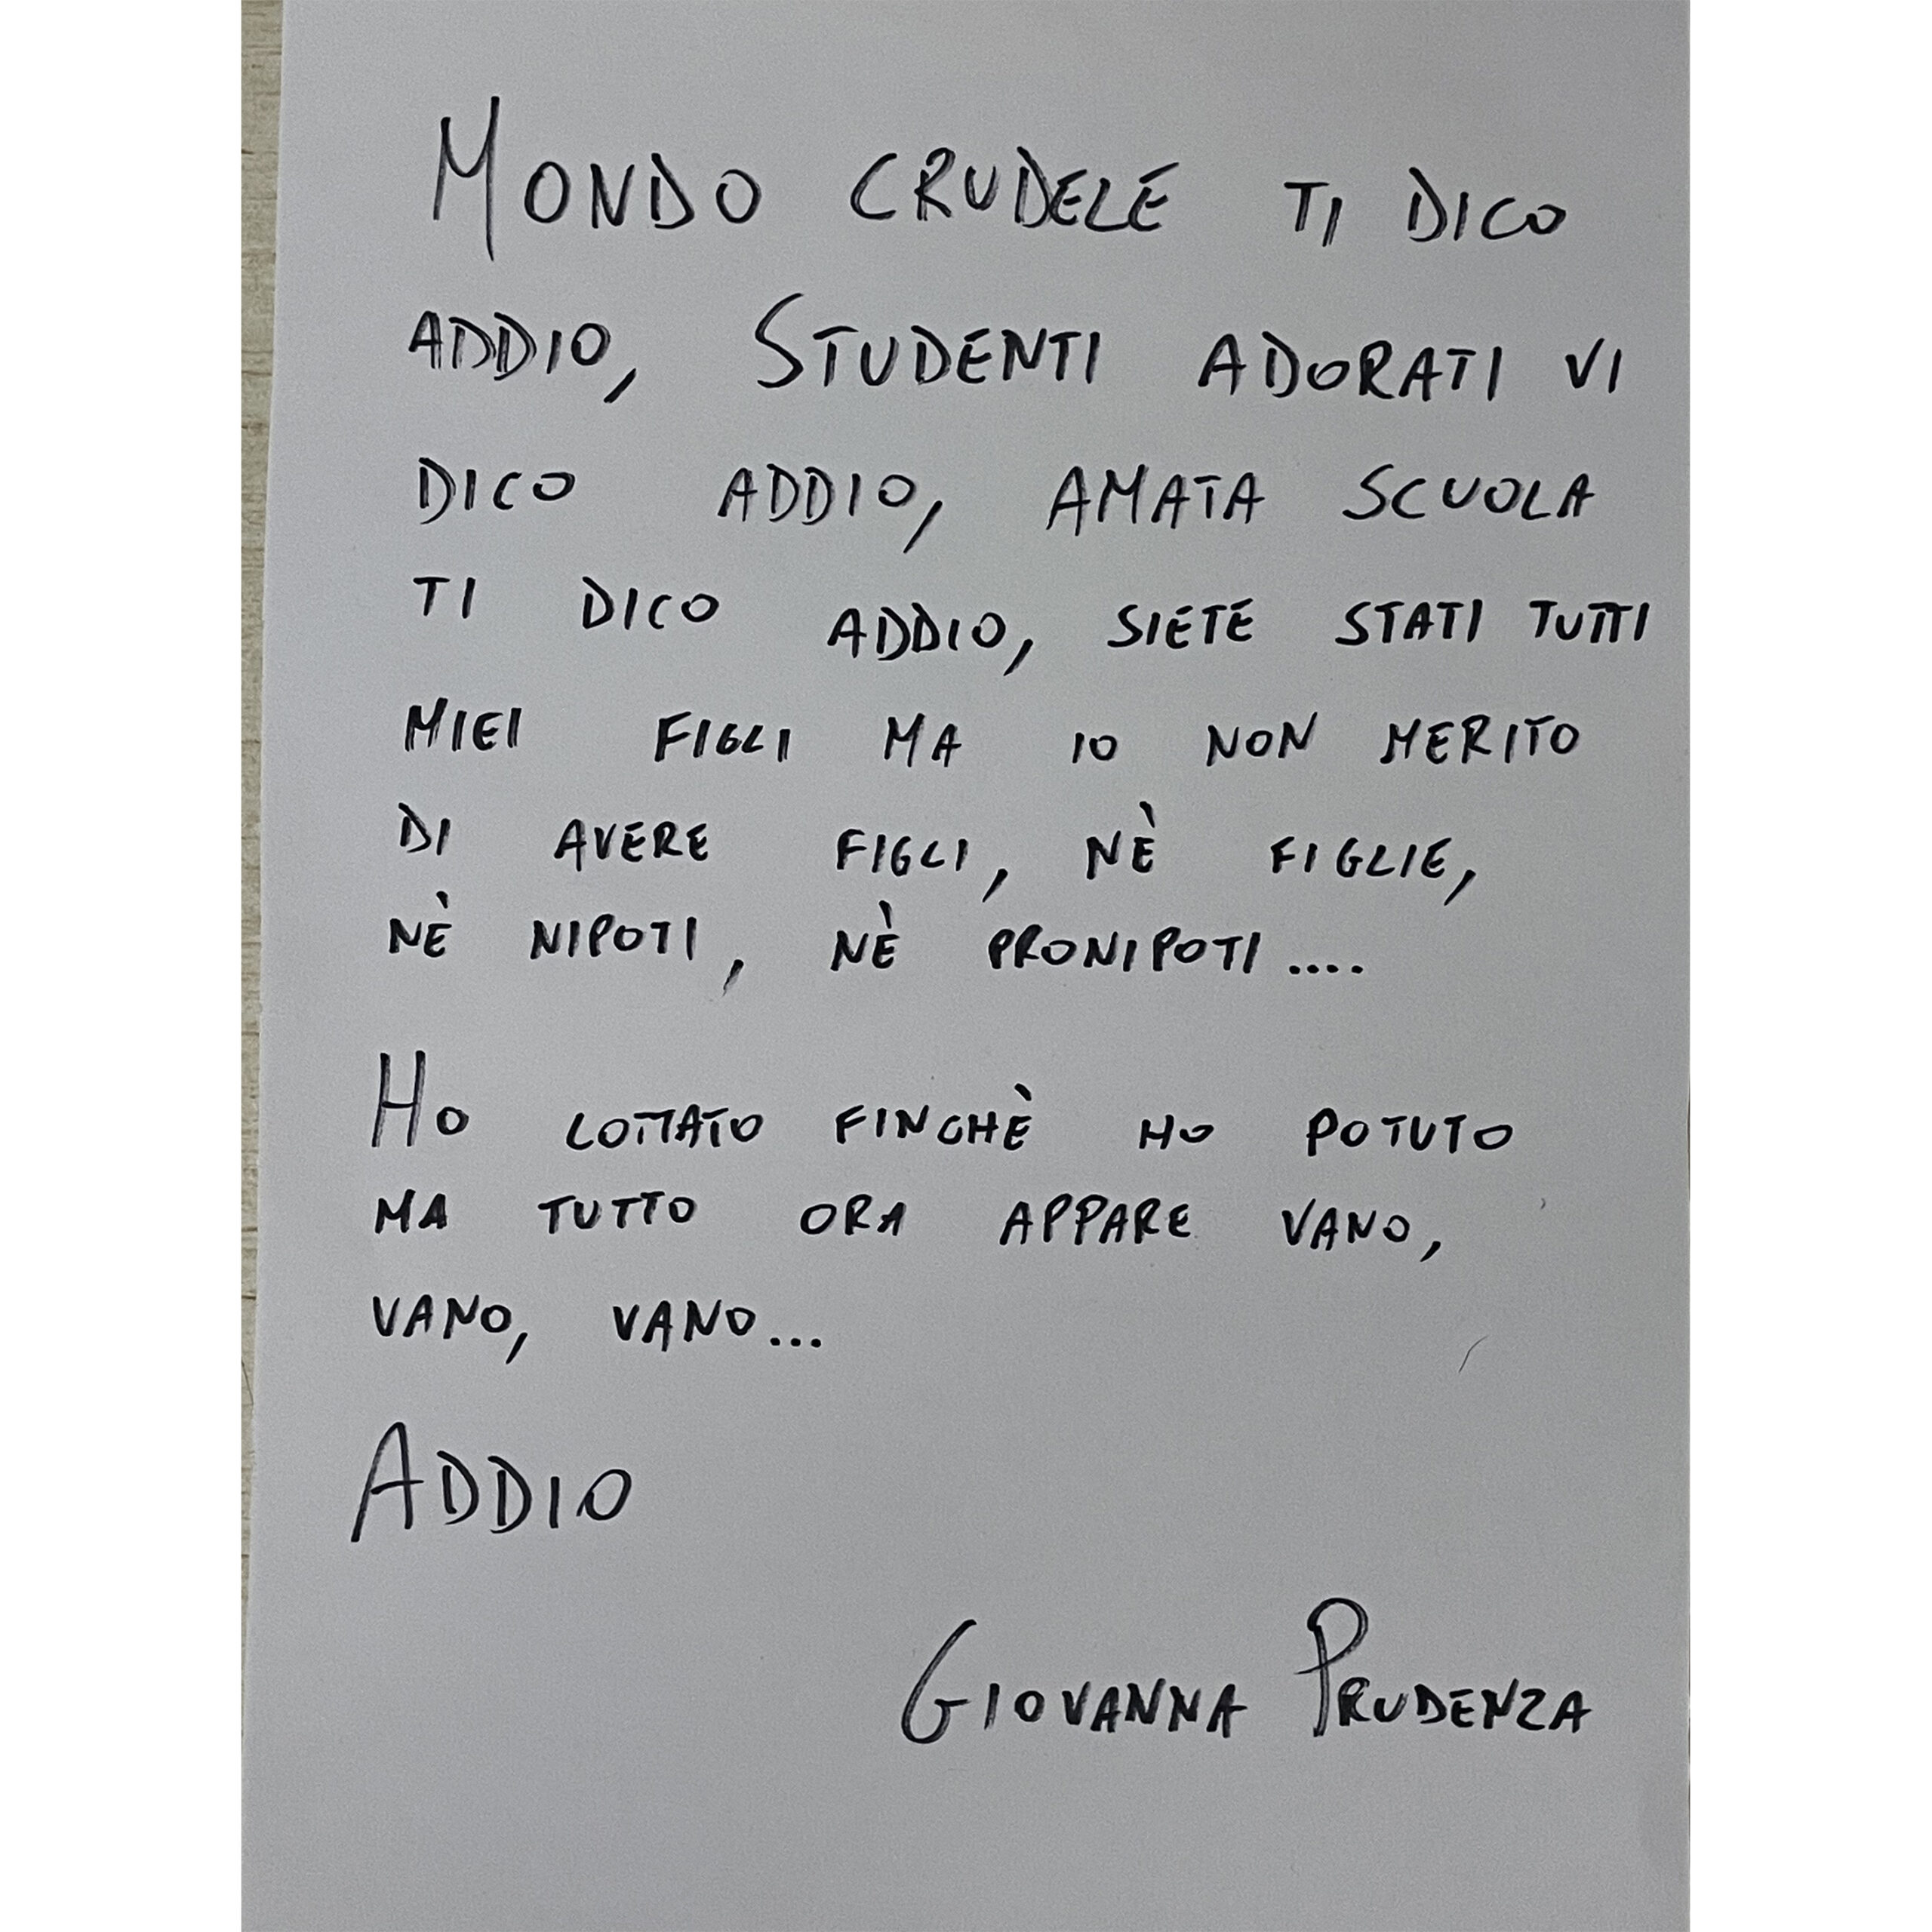 MONDO CRUDELE TI DICO
ADDIO, STUDENTI ADORATI VI
DICO ADDIO, AMATA SCUOLA
TI DICO ADDIO, SIETE STATI TUTTI
MIEI FIGLI MA IO NON MERITO
DI AVERE FIGLI, NÈ FIGLIE,
NÈ NIPOTI, NÈ PRONIPOTI....
HO LOTTATO FINCHÈ HO POTUTO
MA TUTTO ORA APPARE VANO,
VANO, VANO...
ADDIO
GIOVANNA PRUDENZA